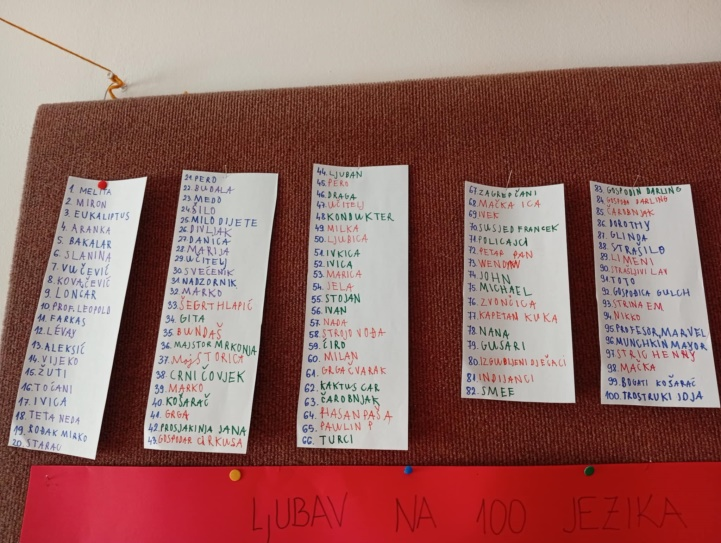 1. MELITA
2. MIRON
3. EUKALIPTUS
4. ARANKA
5. BAKALAR
6. SLANINA
7. VUČEVIĆ
8. KOVAČEVIĆ
9. LONČAR
10. PROF. LEOPOLD
11. FARKAS
12. LÉVAY
13. ALEKSIĆ
14. VIJEKO
15. ŽUTI
16. TOČANI
17. IVICA
18. TETA NEDA
19. ROĐAK MIRKO
20. STARAC
21. PERO
22. BUDALA
23. MEDO
24. ŠILO
25. MILO DIJETE
26. DIVLJAK
27. DANICA
28. MARIJA
29. UČITELJ
30. SVEĆENIK
31. NADZORNIK
32. MARKO
33. ŠEGRT HLAPIĆ
34. GITA
35. BUNDAŠ
36. MAJSTOR MRKONJA
37. MAJSTORICA
38. CRNI ČOVJEK
39. MARKO
40. KOŠARAČ
41. GRGA
42. PROSJAKINJA JANA
43. GOSPODAR CIRKUSA
44. LJUBAN
45. PERO
46. DRAGA
47. UČITELJ
48. KONDUKTER
49. MILKA
50. LJUDICA
51. IVKICA
52. IVICA
53. MARICA
54. JELA
55. STOJAN
56. IVAN
57. NADA
58. STROJOVOĐA
59. ĆIRO
60. MILAN
61. GRGA ČVARAK
62. KAKTUS CAR
63. ČAROBNJAK
64. HASANPAŠA
65. PAVLIN P
66. TURCI
67. ZAGREPČANI
68. MAČKA ICA
69. IVEK
70. SUSJED FRANCEK
71. POLICAJCI
72. PETAR PAN
73. WENDY
74. JOHN
75. MICHAEL
76. ZVONČICA
77. KAPETAN KUKA
78. NANA
79. GUSARI
80. IZGUBLJENI DJEČACI
81. INDIJANCI
82. SMEE
83. GOSPODIN DARLING
84. GOSPOĐA DARLING
85. ČAROBNJAK
86. DOROTHY
87. GLINDA
88. STRAŠILO
89. LIMENI
90. STRAŠLJIVI LAV
91. TOTO
92. GOSPOĐICA GULCH
93. STRINA EM
94. NIKKO
95. PROFESOR MARVEL
96. MUNCHKIN MAYOR
97. STRIC HENRY
98. MAČKA
99. BOGATI KOŠARAČ
100. TROSTRUKI IDJA
LJUBAV NA 100 JEZIKA